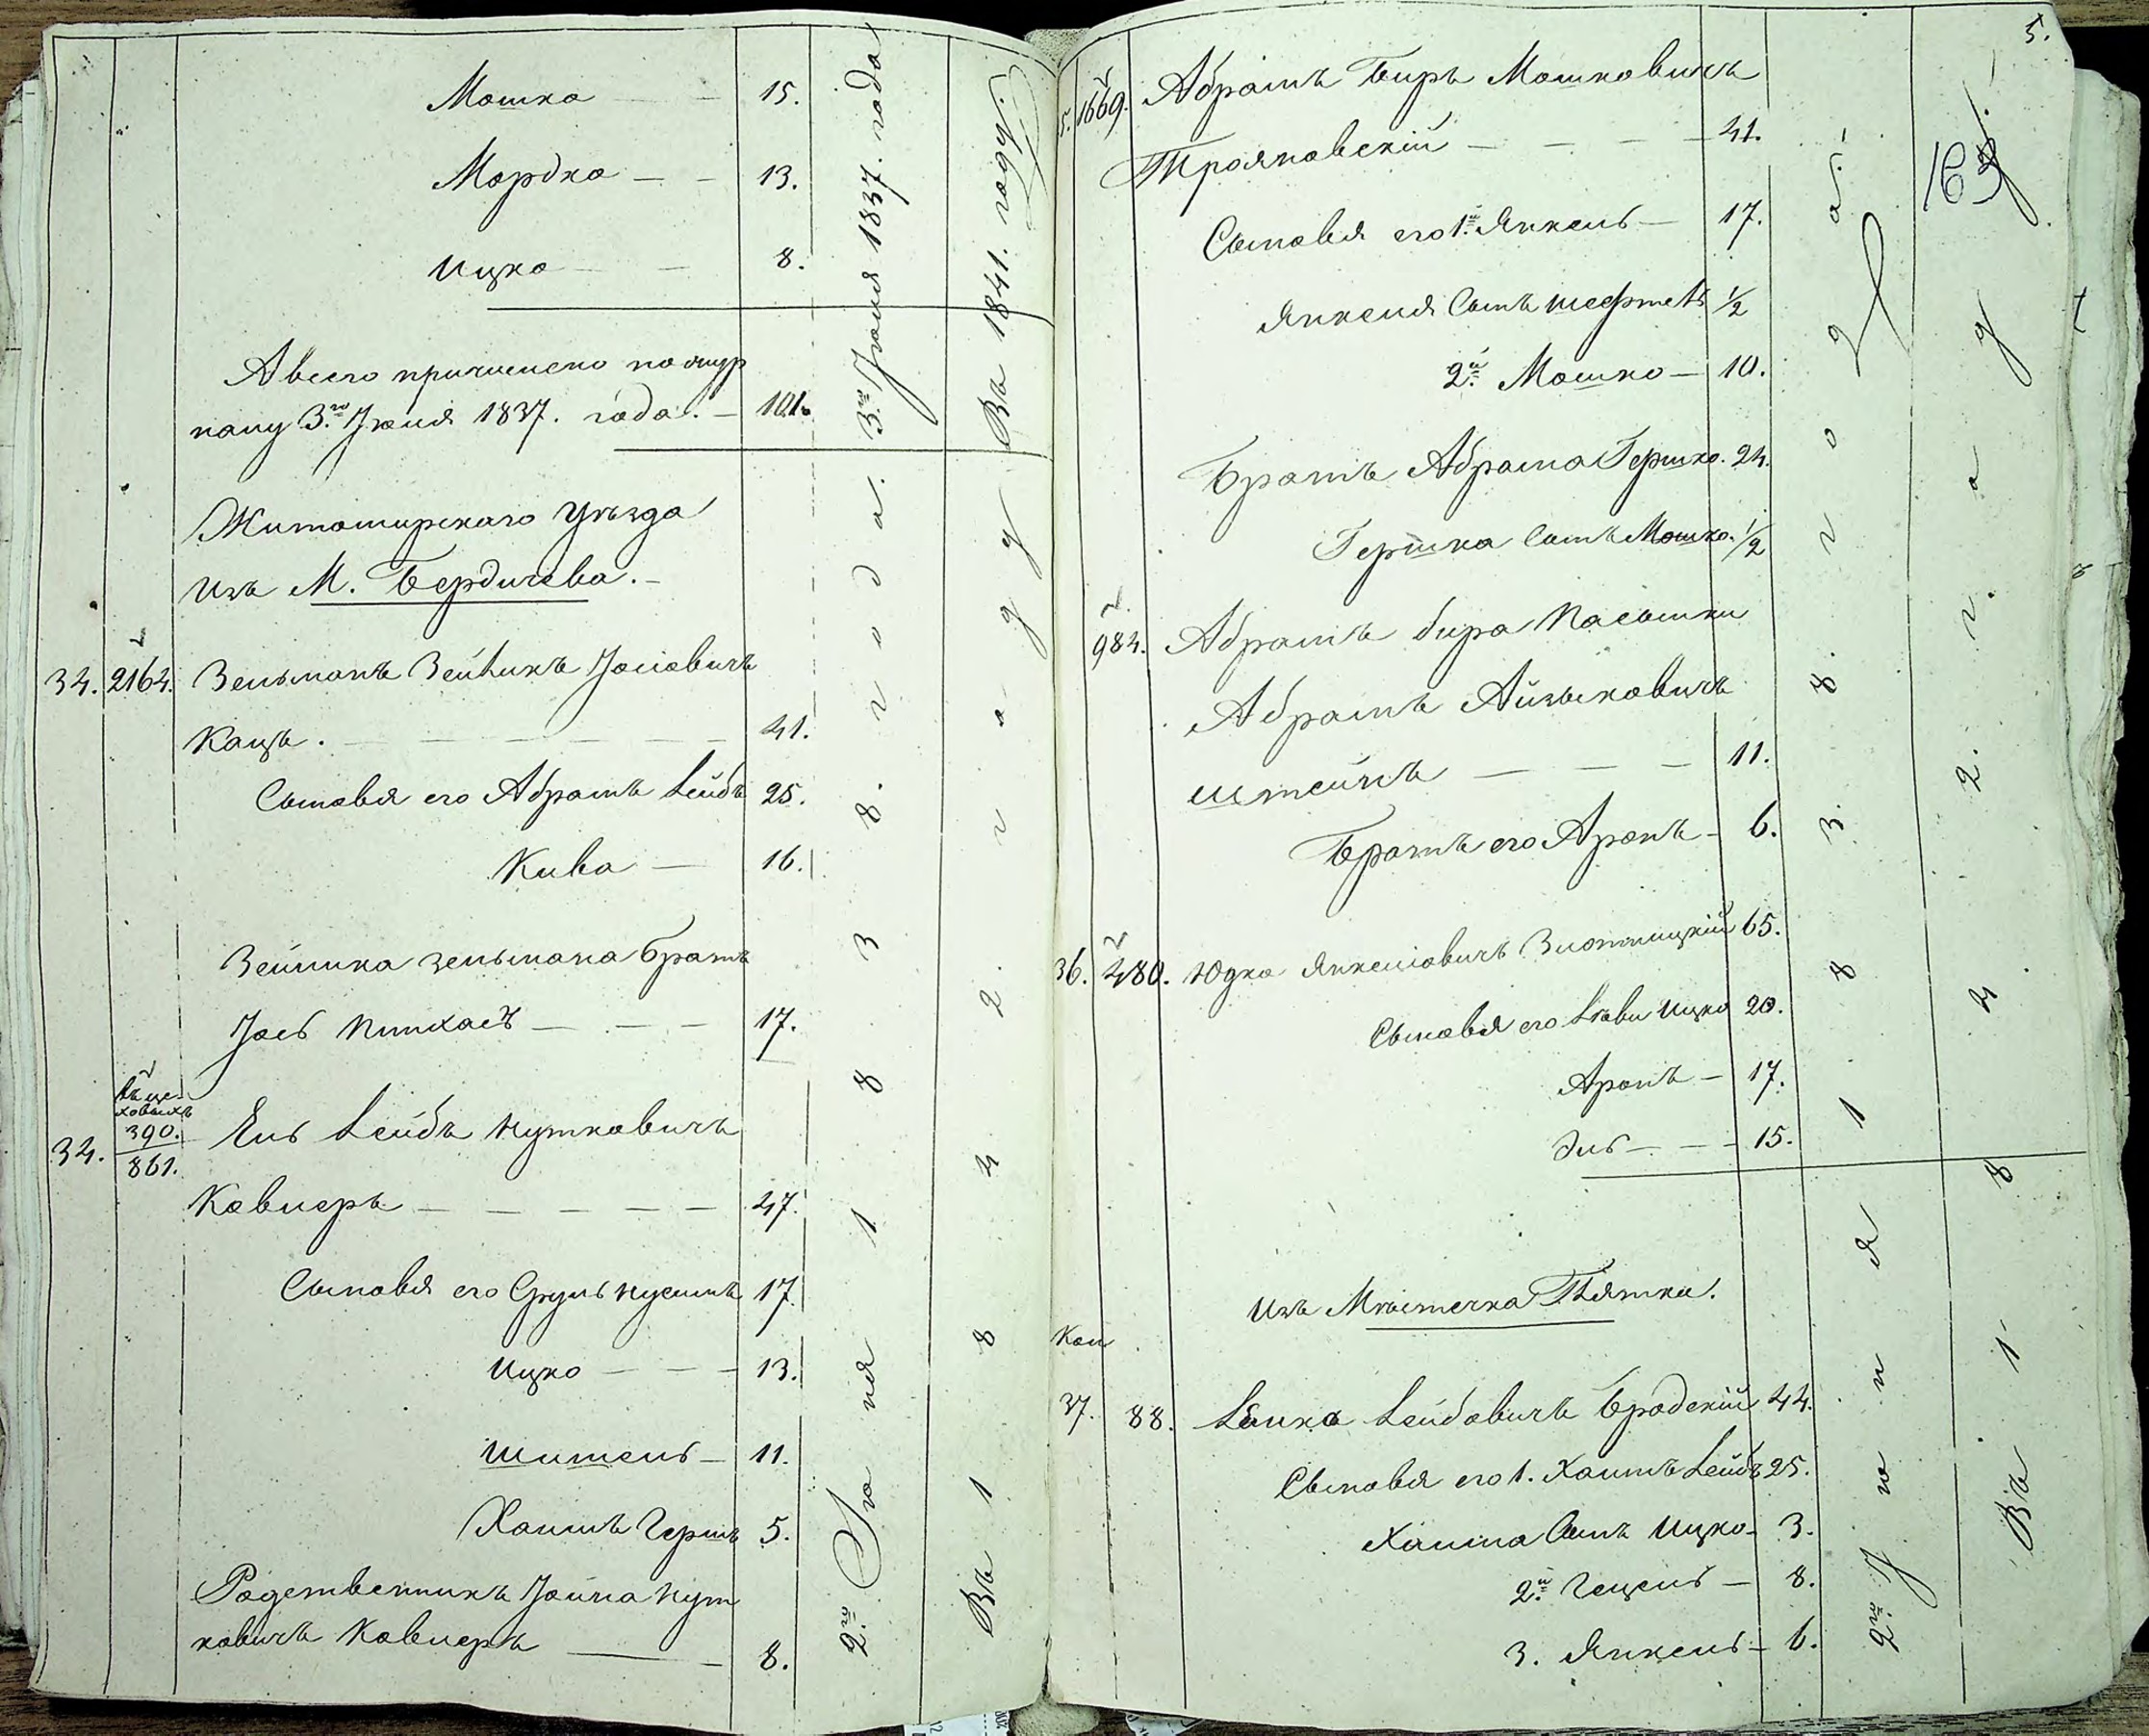 Мошко — — 15.
Мордко — — 13.
Ицко — — 8.
А всего причислено по
3.го Іюля 1837. года. — 101.
Житомирскаго Уѣзда
Изъ М. Бердичева.
34. 2164. Зельманъ Зейликъ Іосіовичъ
Кацъ. — 41.
Сыновья его Абрамъ Лейбъ 25.
Кива — 16.
Зейлика Зельмана братъ
Іось Пинхасъ — 17.
34. въ це-
ховыхъ
390.
861.
Ель Лейбъ Нутковичъ
Ковлеръ — 47.
Сыновья его Сруль Нусимъ 17.
Ицко — — 13.
Шмиель — 11.
Хаимъ Гершъ 5.
Родственникъ Іойна Нут
ковичъ Ковлеръ — 8.
3.го Іюля 1837. года
Въ 1841. году.
2.го Іюля 1838. года.
Въ 1842. году
5.
163
5. 1669. Абрамъ Беръ Мошковичъ
Трояновскій — 41.
Сыновья его 1.й Янкель — 17.
Янкеля сынъ Шефтель 1/2
2.й Мошко — 10.
Братъ Абрама Гершко. 24.
Гершка сынъ Мошко. 1/2
984. Абрамъ Бера Пасынки
Абрамъ Айзыковичъ
Штейнъ — 11.
Братъ его Аронъ — 6.
36. 480. Юдко Янкеліовичъ Злотницкій 65.
Сыновья его Леви Ицко 20.
Аронъ — 17.
Эль — 15.
Изъ Мѣстечка Пятка.
Коп
37. 88. Лейбовичъ Бродскій 44.
Сыновья его 1. Хаимъ Лейбъ 25.
Хаима Сынъ Ицко — 3.
2.й Гецель — 8.
3. Янкель — 6.
2.го Іюля 1838. года.
Въ 1842. году